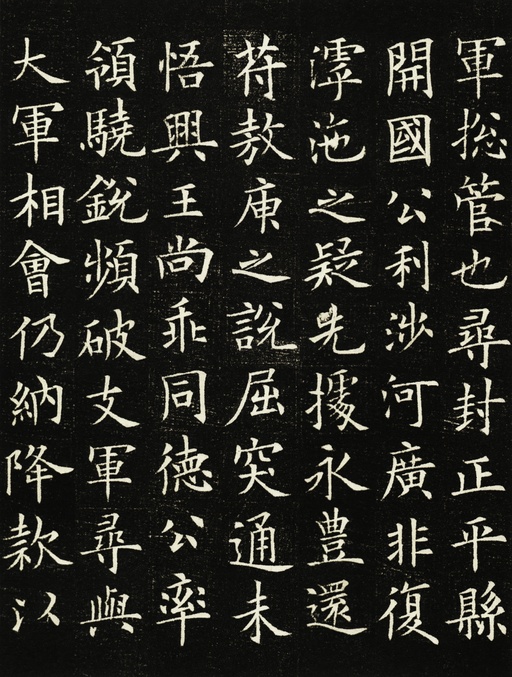 軍総管也尋封正平縣
開國公利涉河廣非復
滹沲之疑先據永豊還
苻敖庾之說屈突通未
悟興王尚乖同德公率
領驍銳頻破支軍尋與
大軍相會仍納降款以